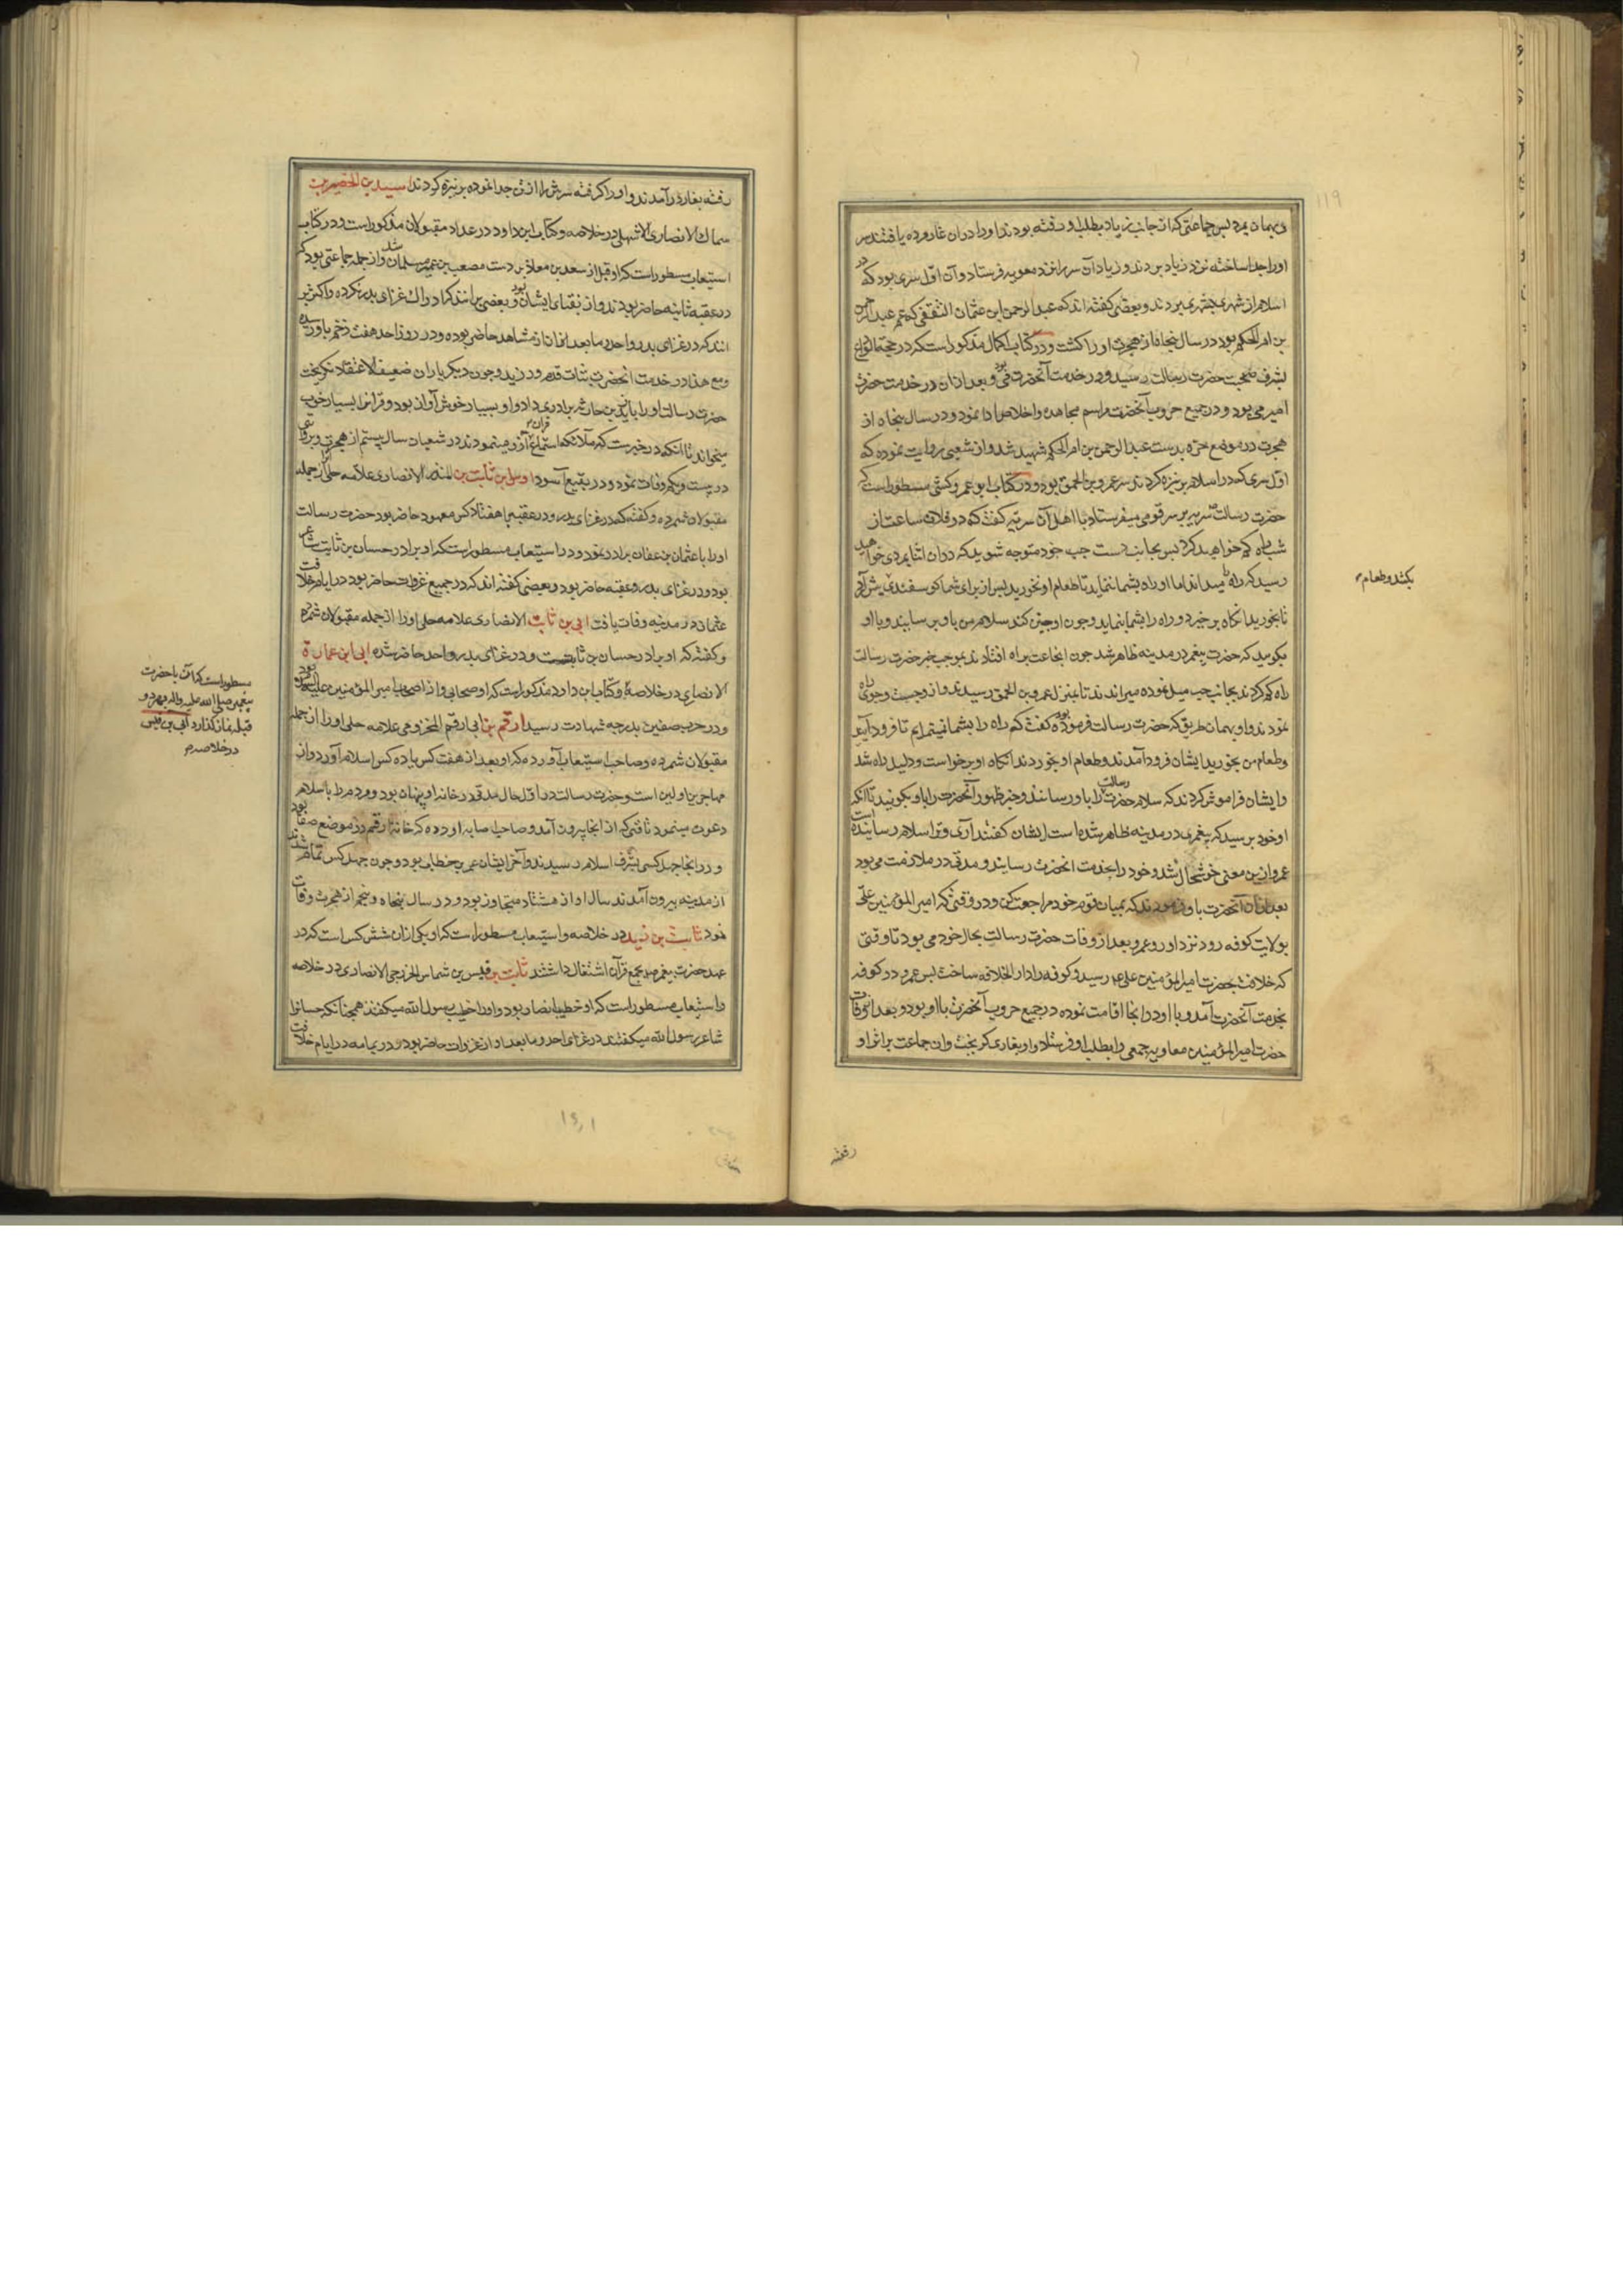 وبهمان بمرد پس جماعتی که از جانب زیاد بطلب او رفته بودند او را در آن غار مرده یافتند سر
او را جدا ساخته نزد زیاد بردند و زیاد آن سر را نزد معویه فرستاد و آن اول سری بود که در
اسلام از شهری بشهری بردند و بعضی گفته اند که عبد الرحمن ابن عثمان الثقفی که عم عبد الرحمن
بن ام الحکم بود در سال پنجاه از هجرت او را کشت و در کتاب اکمال مذکور است که در حجة الوداع
بشرف صحبت حضرت رسالت رسید و در خدمت آنحضرت می بود و بعد از آن در خدمت حضرت
امیر می بود و در جمیع حروب آنحضرت مراسم مجاهده و اخلاص ادا نمود و در سال پنجاه از
هجرت در موضع حره بدست عبد الرحمن بن ام الحکم شهید شد و از شعبی روایت نموده که
اول سری که در اسلام بر نیزه کردند سر عمرو بن الحمق بود و در کتاب ابو عمرو کشی مسطور است که
حضرت رسالت سریه بر سر قومی میفرستاد با اهل آن سریه گفت که در فلان ساعت از
شب راه گم خواهید کرد پس بجانب دست چپ خود متوجه شوید که در آن اثنا بمردی خواهید
رسید که راه میداند اما او راه بشما ننماید تا طعام او نخورید پس از برای شما گوسفندی پیش آرد
بکشد و طعام
تا بخورید انگاه برخیزد و راه را بشما بنماید و چون او چنین کند سلام من باو برسانید و با او
بگویید که حضرت پیغمبر در مدینه ظاهر شد چون انجاعت براه افتادند بموجب خبر حضرت رسالت
راه گم کردند بجانب چپ میل نموده میراندند تا بمنزل عمرو بن الحمق رسیدند و از و جست و جوی راه
نمودند و او بهمان طریق که حضرت رسالت فرموده بود گفت که راه را بشما نمینمایم تا فرود آیید
و طعام من بخورید ایشان فرود آمدند و طعام او بخوردند انگاه او برخواست و دلیل راه شد
و ایشان فراموش کردند که سلام حضرت رسالت را باو رسانند و خبر ظهور آنحضرت را باو بگویند تا آنکه
او خود پرسید که پیغمبری در مدینه ظاهر شده است ایشان گفتند آری و ترا سلام رسانیده است
عمرو از این معنی خوشحال شد و خود را بخدمت آنحضرت رسانید و مدتی در ملازمت می بود
بعد از آن آنحضرت باو فرمودند که بمیان قوم خود مراجعت کن و در وقتی که امیر المؤمنین علی
بولایت کوفه رود نزد او رو عمرو بعد از وفات حضرت رسالت بحال خود می بود تا وقتی
که خلافت بحضرت امیر المؤمنین علی ع رسید و کوفه را دار الخلافه ساخت پس عمرو در کوفه
بخدمت آنحضرت آمد و با او در انجا اقامت نموده در جمیع حروب آنحضرت با او بود و بعد از وفات
حضرت امیر المؤمنین معاویه جمعی را بطلب او فرستاد و او بغاری گریخت و ان جماعت بر اثر او
رفته
رفته بغار درآمدند و او را گرفته سرش را از تن جدا نموده بر نیزه کردند اسید بن الحضیر بن
سماک الانصاری الاشهلی در خلاصه و کتاب ابن داود در عداد مقبولان مذکور است و در کتاب
استیعاب مسطور است که او قبل از سعد بن معاذ بر دست مصعب بن عمیر مسلمان شد و از جمله جماعتی بود که
در عقبه ثانیه حاضر بودند و از نقبای ایشان بود و بعضی برانند که ادراک غزای بدر نکرده و اکثر بر
انند که در غزای بدر و احد و ما بعد از آن از مشاهد حاضر بوده و در روز احد هفت زخم باو رسیده
و مع هذا در خدمت انحضرت ثبات قدم ورزید و چون دیگر یاران ضعیف الاعتقاد نگریخت
حضرت رسالت او را با زید بن حارثه برادری داد و او بسیار خوش آواز بود و قرانرا بسیار خوب
میخواند تا انکه در خبرست که ملائکه استماع قران او مینمودند در شعبان سال بیستم از هجرت و بروایتی
در بیست و یکم وفات نمود و در بقیع آسود اوس بن ثابت بن المنذر الانصاری علامه حلی او را از جمله
مقبولان شمرده و گفته که در غزای بدر و در عقبه با هفتاد کس معهود حاضر بود حضرت رسالت
او را با عثمان بن عفان برادر نمود و در استیعاب مسطور است که او برادر حسان بن ثابت شاعر
بود و در غزای بدر و عقبه حاضر بود و بعضی گفته اند که در جمیع غزوات حاضر بود در ایام خلافت
عثمان در مدینه وفات یافت ابی بن ثابت الانصاری علامه حلی او را از جمله مقبولان شمرده
و گفته که او برادر حسان بن ثابتست و در غزای بدر و احد حاضر شده ابی ابن عمارة
الانصاری در خلاصه و کتاب ابن داود مذکور است که او صحابی و از اصحاب امیر المؤمنین علیه السلام بود
مسطور است که آن با حضرت
پیغمبر صلی الله علیه و اله بهر دو
قبله نماز گذارد ابی بن قیس
در خلاصه
و در حرب صفین بدرجه شهادت رسید ارقم بن ابی ارقم المخزومی علامه حلی او را از جمله
مقبولان شمرده و صاحب استیعاب آورده که او بعد از هفت کس یا ده کس اسلام آورد و از
مهاجرین اولین است و حضرت رسالت در اول حال مدتی در خانه او پنهان بود و مردم را باسلام
دعوت مینمود تا وقتی که از انجا بیرون آمد و صاحب اصابه اورده که خانه ارقم در موضع صفا بود
و در انجا چهل کس بشرف اسلام رسیدند و آخر ایشان عمر بن خطاب بود و چون چهل کس تمام شدند
از مدینه بیرون آمدند سال او از هشتاد متجاوز بود و در سال پنجاه و پنجم از هجرت وفات
نمود ثابت بن زید در خلاصه و استیعاب مسطور است که او یکی از ان شش کس است که در
عهد حضرت پیغمبر ص بجمع قرآن اشتغال داشتند ثابت بن قیس بن شماس الخزرجی الانصاری در خلاصه
و استیعاب مسطور است که او خطیب انصار بود و او را خطیب رسول الله میگفتند همچنانکه حسانرا
شاعر رسول الله میگفتند در غزای احد و ما بعد او از غزوات حاضر بود و در یمامه در ایام خلافت